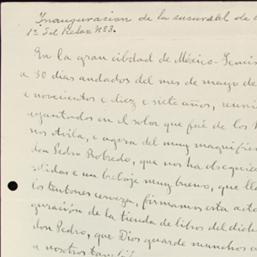 Inauguracion de la sucursal de
1ª del Relox Nº 3.
En la gran cibdad de México-Tenus
a 30 dias andados del mes de março de
e novecientos e diez e siete años, reuni
ayuntados en el solar que fué de los
nos Avila, e agora del muy magnifi
don Pedro Robredo, que nos ha obsequia
didas e un bebaje muy bueno, que lla
los teutones cerveza, firmamos esta acta
guración de la tienda de libros del dicho
don Pedro, que Dios guarde munchos a
a nosotros también